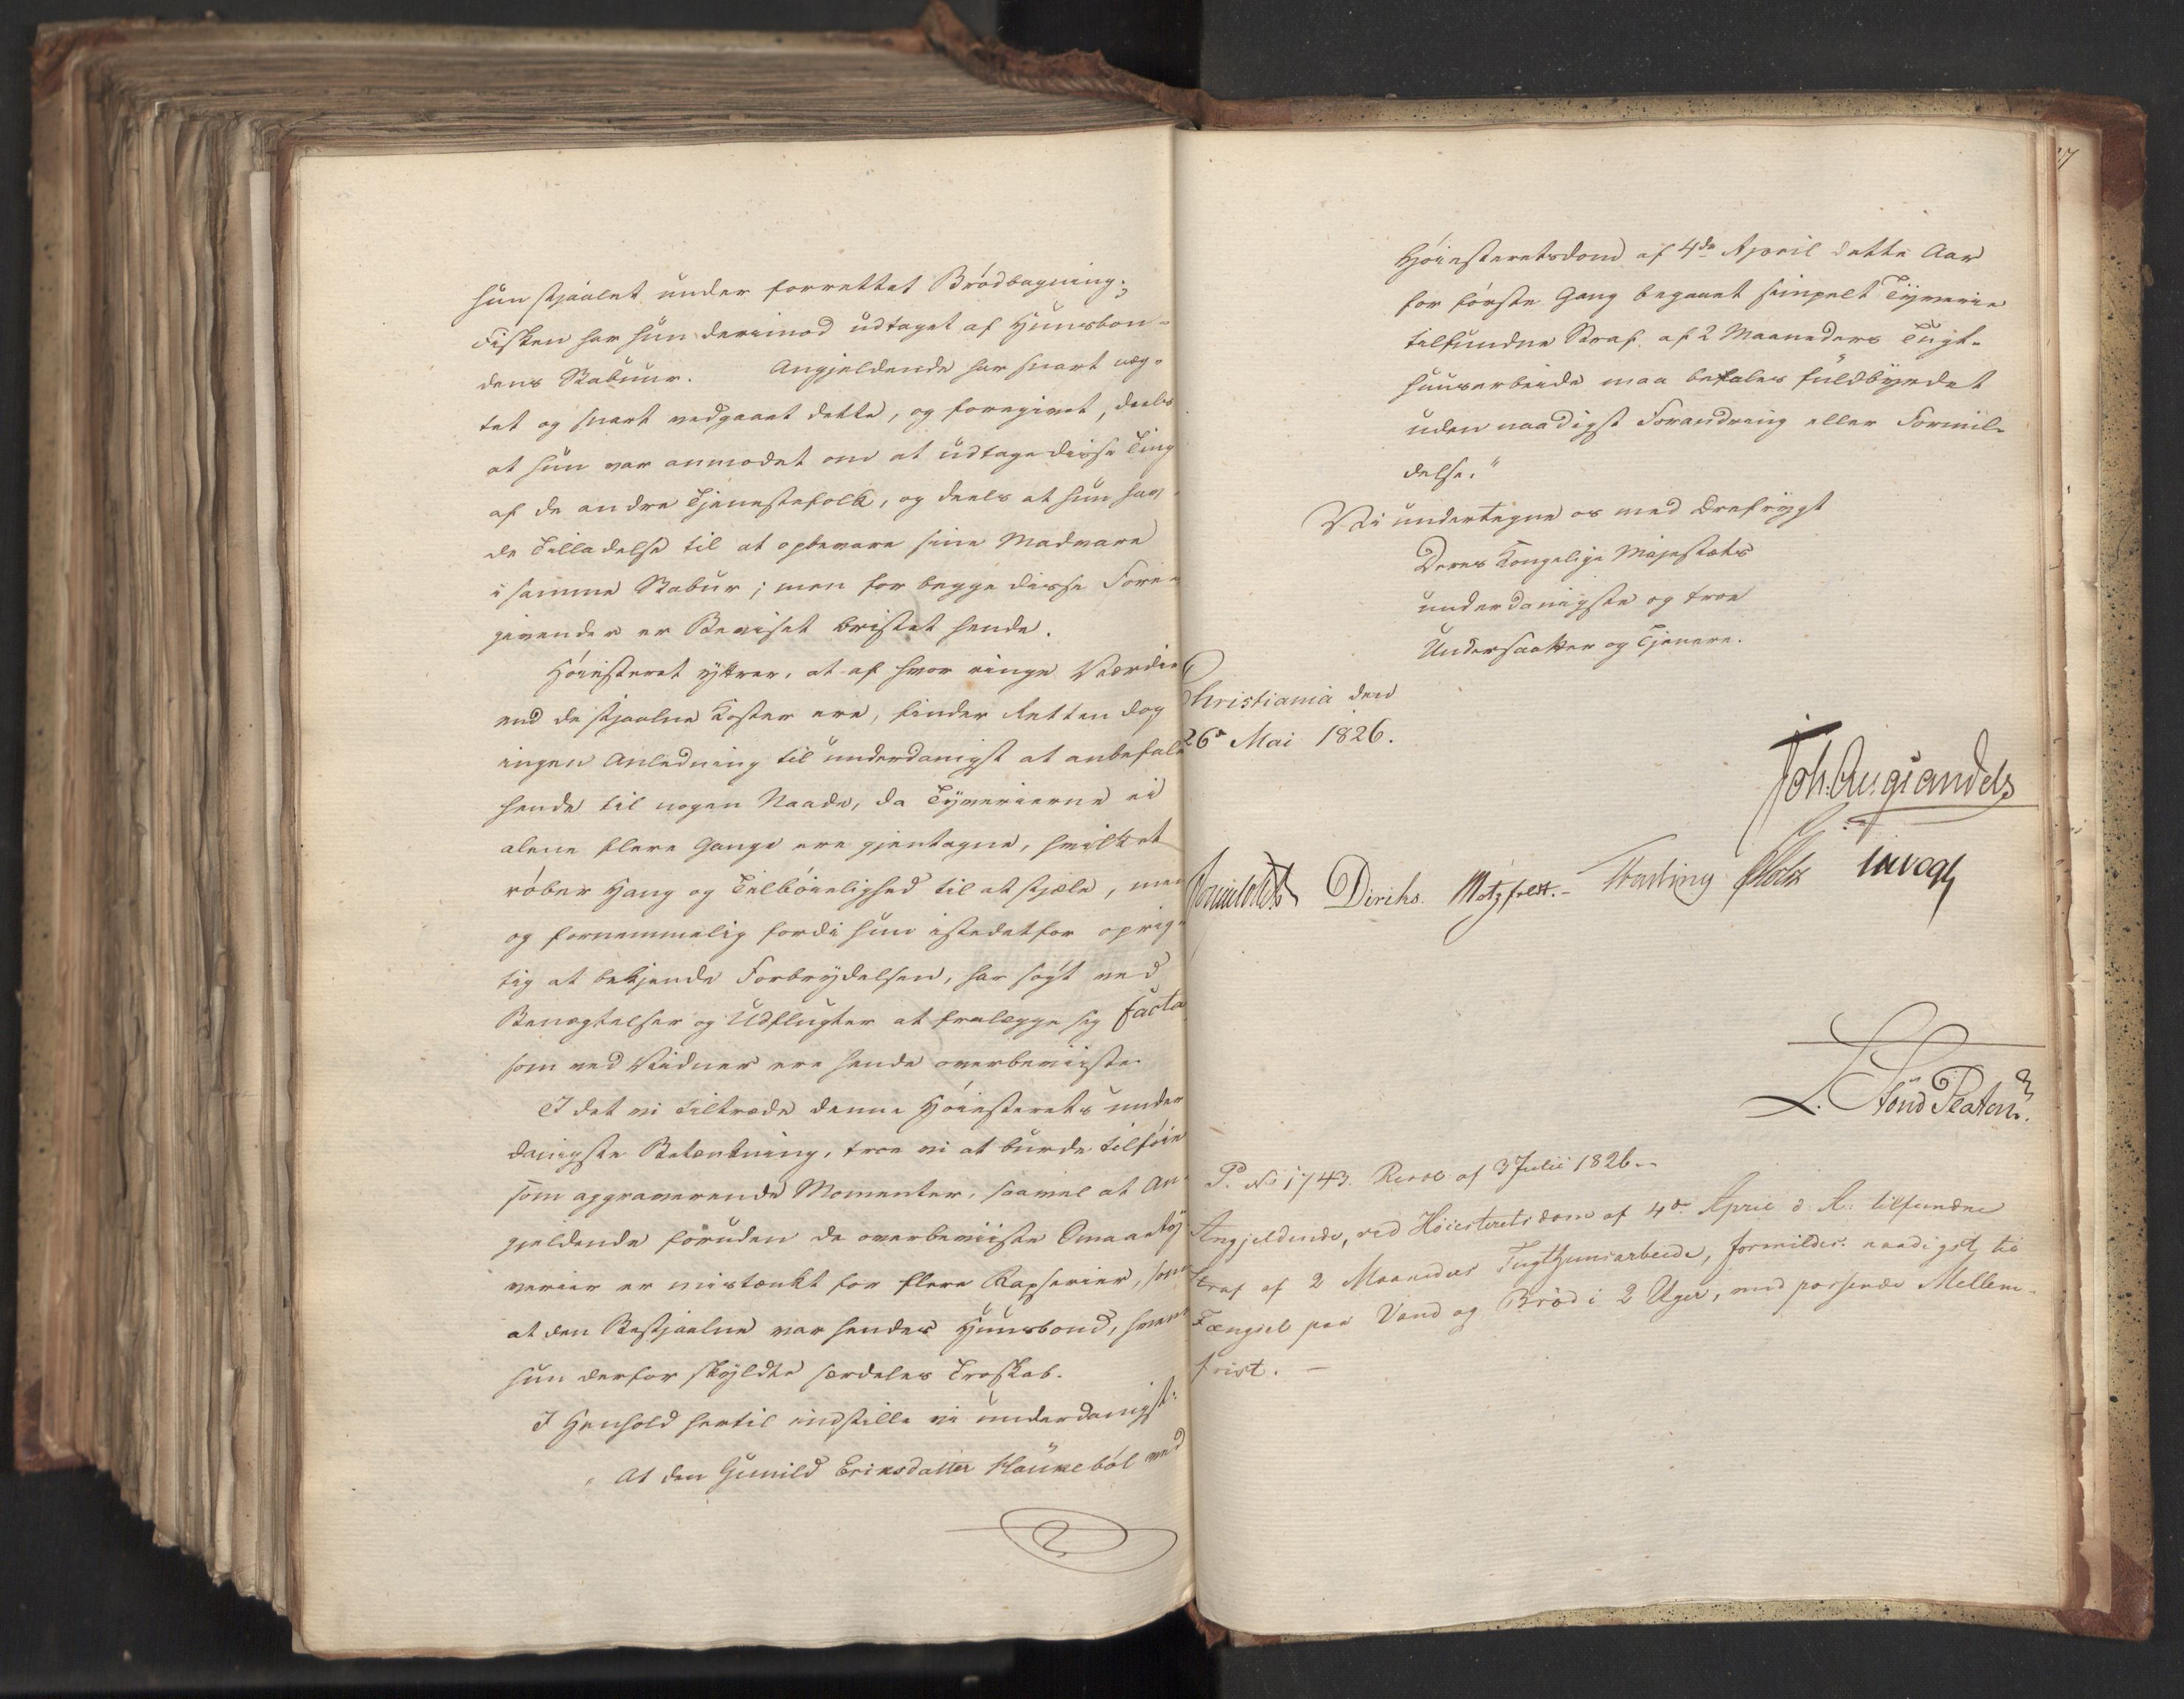 hun stjaalet under forrettet Brödbagning;
Fisken har hun derimod udtaget af Huusbon-
dens Stabuur. Angjeldende har snart næg-
tet og snart vedgaaet dette, og foregivet, deels
at hun var anmodet om at udtage disse Ting
af de andre Tjenestefolk, og deels at hun hav-
de Tilladelse til at opbevare sine Madvare
i samme Stabur; men for begge disse Fore-
givender er Beviset bristet hende.
Höiesteret yttrer, at af hvor ringe Værdie
end de stjaalne Koster ere, finder Retten dog
ingen Anledning til underdanigst at anbefale
hende til nogen Naade, da Tyverierne ei
alene flere Gange ere gjentagne, hvilket
röber Hang og Tilböielighed til at stjæle, men
og fornemmelig fordi hun istedetfor oprig-
tig at bekjende Forbrydelsen, har sögt ved
Benægtelser og Udflugter at fralægge sig facta
som ved Vidner ere hende overbeviiste.
I det vi tiltræde denne Höiesterets under
danigste Betænkning, troe vi at burde tilföie
som aggraverende Momenter, saavel at An-
gjeldende foruden de overbeviiste Smaaty
verier er mistænkt for flere Rapserier, som
at den Bestjaalne var hendes Huusbond, hvem
hun derfor skyldte særdeles Troskab.
I Henhold hertil indstille vi underdanigst:
„At den Gunild Eriksdatter Haukeböl ved
Höiesteretsdom af 4de April dette Aar
for förste Gang begaaet simpelt Tyverie
tilfundne Straf af 2 Maaneders Tugt-
huusarbeide maa befales fuldbyrdet
uden naadigst Forandring eller Formil-
delse."
Vi undertegne os med Ærefrygt
Deres Kongelige Majestæts
underdanigste og troe
Undersaatter og Tjenere.
Christiania den
26de Mai 1826.
Joh. Aug. Sandels
Sommerhielm Diriks. Motzfeldt. Fasting JHVogt
L. Stoud Platou.
P. No 1743. Resol af 3 Julii 1826.
Angjeldende, ved Höiesteretsdom af 4de April d. A. tilfundne
Straf af 2 Maaneders Tugthuusarbeide, formildes naadigst til
Fængsel paa Vand og Bröd i 2 Uger, med passende Mellem-
frist. —